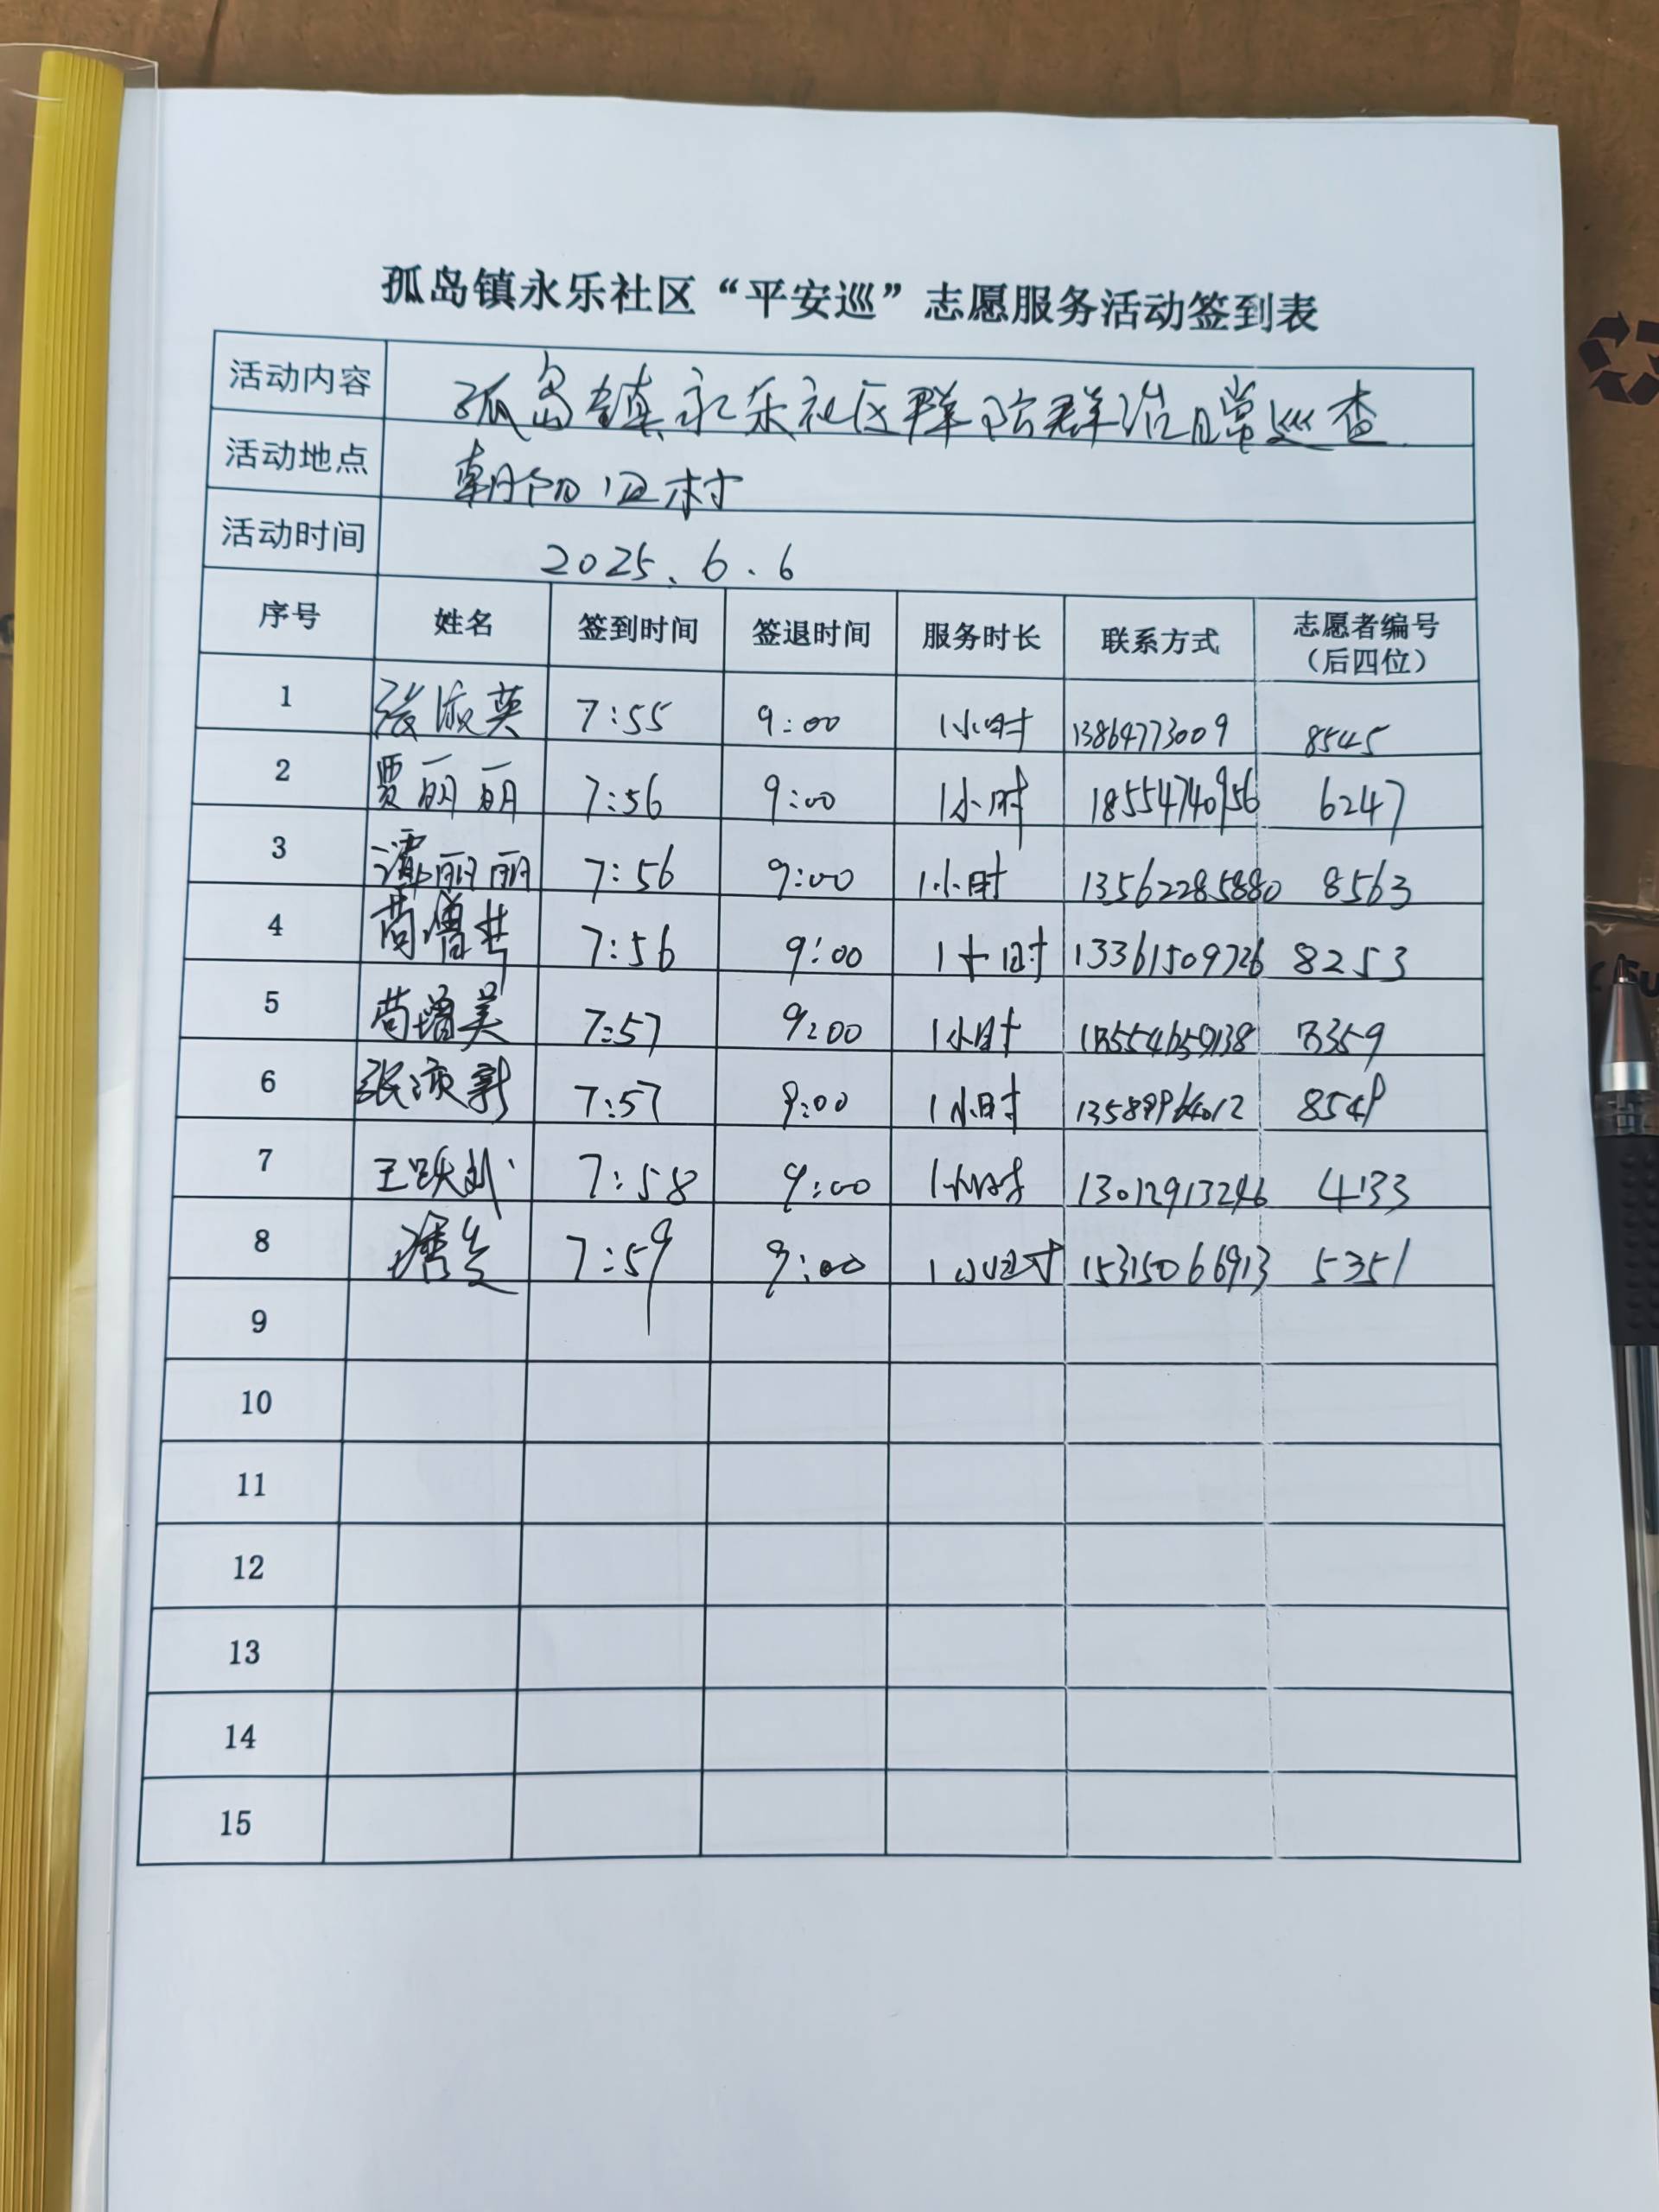 孤岛镇永乐社区“平安巡”志愿服务活动签到表
活动内容 孤岛镇永乐社区群防群治日常巡查
活动地点 朝阳四村
活动时间 2025.6.6
序号 姓名 签到时间 签退时间 服务时长 联系方式 志愿者编号
(后四位)
1 张淑英 7:55 9:00 1小时 13864773009 8545
2 贾丽丽 7:56 9:00 1小时 18554740956 6247
3 谭丽丽 7:56 9:00 1小时 13562285880 8563
4 7:56 9:00 1小时 13361509726 8253
5 苟增美 7:57 9:00 1小时
6 7:57 9:00 1小时 8549
7 7:58 9:00 1小时 13012913246 4133
8 7:59 9:00 1小时 15315066913 5351
9
10
11
12
13
14
15